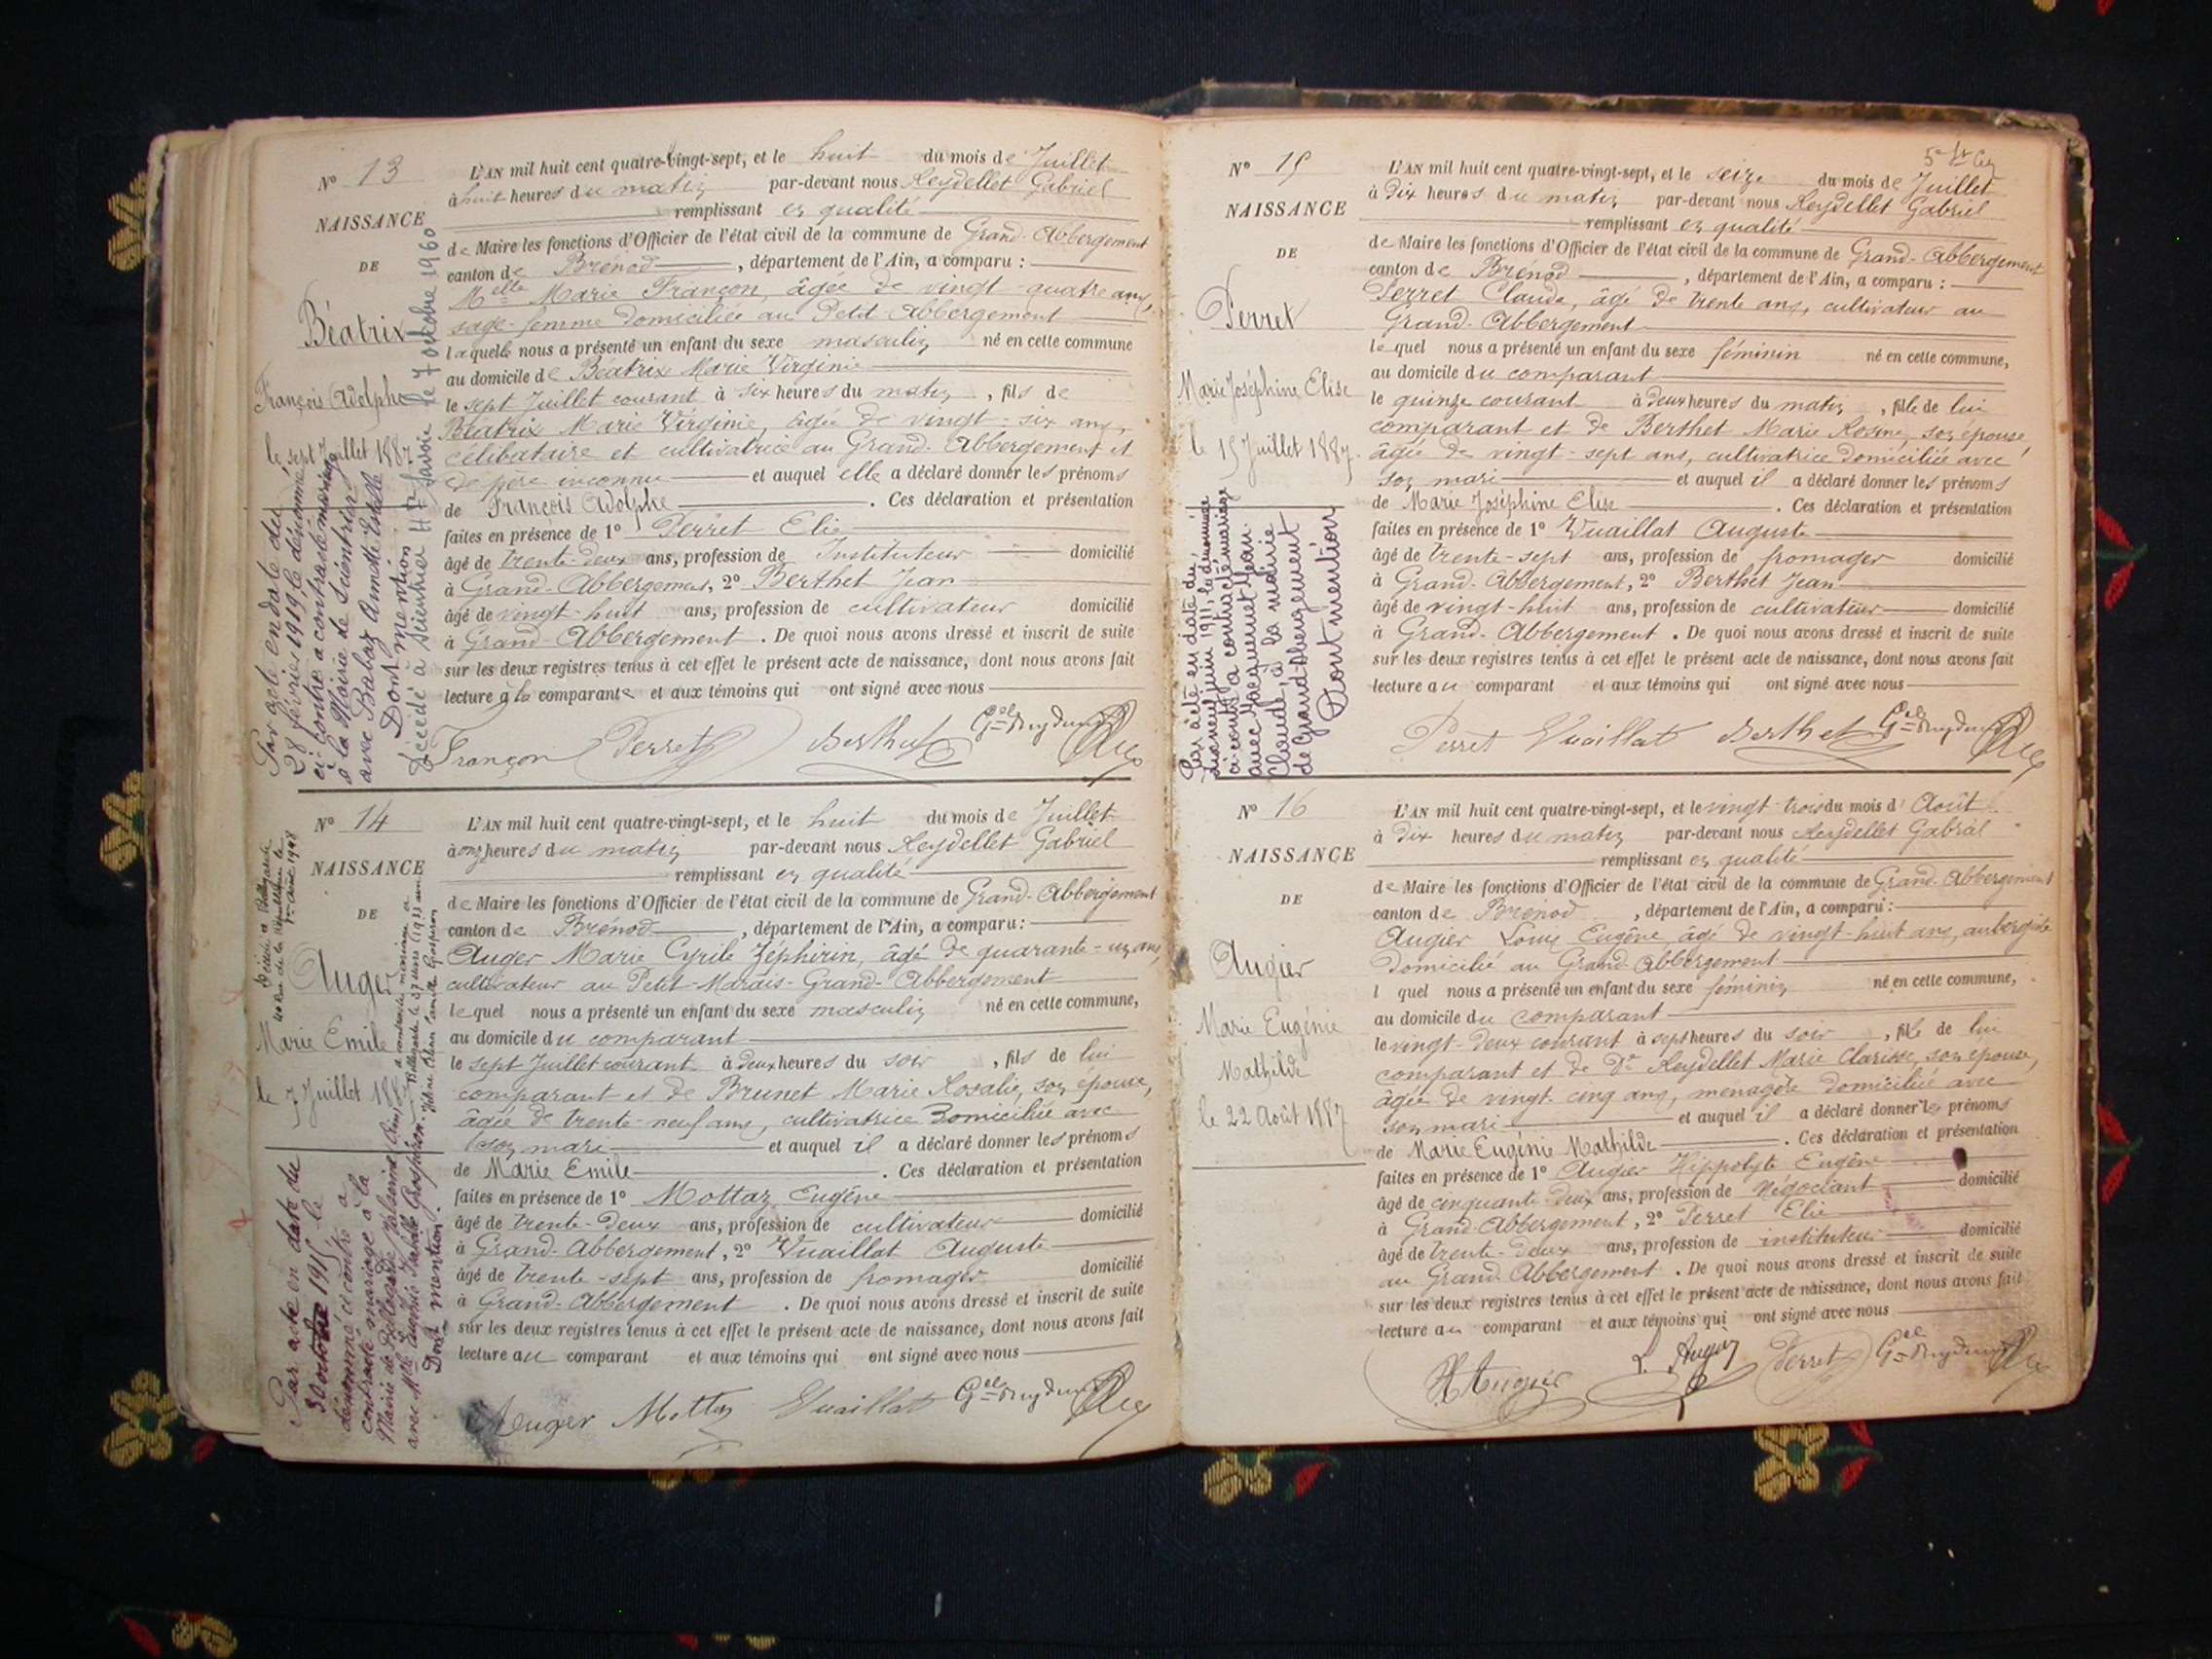 N° 13
NAISSANCE
DE
Béatrix
François Adolphe
le sept Juillet 1887
Par acte en date du
28 février 1919, le dénommé
ci contre a contracté mariage
à la Mairie de Scientrier
avec Babaz Annette Estelle
Dont mention
Décédé à Scientrier Hte Savoie le 7 octobre 1960
L'AN mil huit cent quatre-vingt-sept, et le huit du mois de Juillet
à huit heures du matin par-devant nous Reydellet Gabriel
remplissant en qualité
de Maire les fonctions d'Officier de l'état civil de la commune de Grand-Abbergement
canton de Brénod, département de l'Ain, a comparu :
Melle Marie Françon, âgée de vingt-quatre ans,
sage-femme domiciliée au Petit-Abbergement
laquelle nous a présenté un enfant du sexe masculin né en cette commune
au domicile de Béatrix Marie Virginie
le sept Juillet courant à six heures du matin, fils de
Béatrix Marie Virginie, âgée de vingt-six ans,
célibataire et cultivatrice au Grand-Abbergement et
de père inconnu et auquel elle a déclaré donner les prénoms
de François Adolphe. Ces déclaration et présentation
faites en présence de 1° Perret Elie
âgé de trente-deux ans, profession de Instituteur domicilié
à Grand-Abbergement, 2° Berthet Jean
âgé de vingt-huit ans, profession de cultivateur domicilié
à Grand-Abbergement. De quoi nous avons dressé et inscrit de suite
sur les deux registres tenus à cet effet le présent acte de naissance, dont nous avons fait
lecture à la comparante et aux témoins qui ont signé avec nous
Françon Perret Berthet
N° 14
NAISSANCE
DE
Auger
Marie Emile
le 7 Juillet 188
Décédé à Bellegarde
40 Rue de la République le
1er Août 1948
Par acte en date du
30 octobre 1915, le
dénommé ci contre a
contracté mariage à la
Mairie de Bellegarde
Dont mention.
L'AN mil huit cent quatre-vingt-sept, et le huit du mois de Juillet
à onze heures du matin par-devant nous Reydellet Gabriel
remplissant en qualité
de Maire les fonctions d'Officier de l'état civil de la commune de Grand-Abbergement
canton de Brénod, département de l'Ain, a comparu :
Auger Marie Cyrile Zéphirin, âgé de quarante-un ans,
cultivateur au Petit-Marais-Grand-Abbergement
lequel nous a présenté un enfant du sexe masculin né en cette commune,
au domicile du comparant
le sept Juillet courant à deux heures du soir, fils de lui
comparant et de Brunet Marie Rosalie, son épouse,
âgée de trente-neuf ans, cultivatrice domiciliée avec
son mari et auquel il a déclaré donner les prénoms
de Marie Emile. Ces déclaration et présentation
faites en présence de 1° Mottaz Eugène
âgé de trente-deux ans, profession de cultivateur domicilié
à Grand-Abbergement, 2° Vuaillat Auguste
âgé de trente-sept ans, profession de fromager domicilié
à Grand-Abbergement. De quoi nous avons dressé et inscrit de suite
sur les deux registres tenus à cet effet le présent acte de naissance, dont nous avons fait
lecture au comparant et aux témoins qui ont signé avec nous
Auger Mottaz Vuaillat
N° 15
NAISSANCE
DE
Perret
Marie Joséphine Elise
le 15 Juillet 1887.
Par acte en date du
dix neuf juin 1911, la dénommée
ci-contre a contracté mariage
avec Jacquemet Jean
Claude, à la mairie
de Grand-Abergement
Dont mention
L'AN mil huit cent quatre-vingt-sept, et le seize du mois de Juillet
à Dix heures du matin par-devant nous Reydellet Gabriel
remplissant en qualité
de Maire les fonctions d'Officier de l'état civil de la commune de Grand-Abbergement
canton de Brénod, département de l'Ain, a comparu :
Perret Claude, âgé de trente ans, cultivateur au
Grand-Abbergement
lequel nous a présenté un enfant du sexe féminin né en cette commune,
au domicile du comparant
le quinze courant à deux heures du matin, fille de lui
comparant et de Berthet Marie Rosine, son épouse,
âgée de vingt-sept ans, cultivatrice domiciliée avec
son mari et auquel il a déclaré donner les prénoms
de Marie Joséphine Elise. Ces déclaration et présentation
faites en présence de 1° Vuaillat Auguste
âgé de trente-sept ans, profession de fromager domicilié
à Grand-Abbergement, 2° Berthet Jean
âgé de vingt-huit ans, profession de cultivateur domicilié
à Grand-Abbergement. De quoi nous avons dressé et inscrit de suite
sur les deux registres tenus à cet effet le présent acte de naissance, dont nous avons fait
lecture au comparant et aux témoins qui ont signé avec nous
Perret Vuaillat Berthet
N° 16
NAISSANCE
DE
Augier
Marie Eugénie
Mathilde
le 22 Août 1887
L'AN mil huit cent quatre-vingt-sept, et le vingt-trois du mois d'Août
à Dix heures du matin par-devant nous Reydellet Gabriel
remplissant en qualité
de Maire les fonctions d'Officier de l'état civil de la commune de Grand-Abbergement
canton de Brénod, département de l'Ain, a comparu :
Augier Louis Eugène, âgé de vingt-huit ans, aubergiste
domicilié au Grand-Abbergement
l quel nous a présenté un enfant du sexe féminin né en cette commune,
au domicile du comparant
le vingt-deux courant à sept heures du soir, fille de lui
comparant et de De Reydellet Marie Clarisse, son épouse,
âgée de vingt-cinq ans, ménagère domiciliée avec
son mari et auquel il a déclaré donner les prénoms
de Marie Eugénie Mathilde. Ces déclaration et présentation
faites en présence de 1° Augier Hippolyte Eugène
âgé de cinquante-deux ans, profession de Négociant domicilié
à Grand-Abbergement, 2° Perret Elie
âgé de trente-deux ans, profession de instituteur domicilié
au Grand-Abbergement. De quoi nous avons dressé et inscrit de suite
sur les deux registres tenus à cet effet le présent acte de naissance, dont nous avons fait
lecture au comparant et aux témoins qui ont signé avec nous
H Augier L. Augier Perret